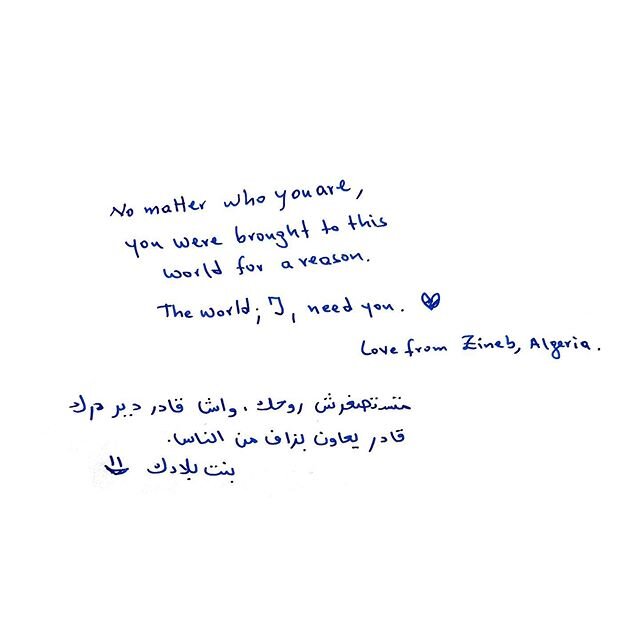 No matter who you are,
you were brought to this
world for a reason.
The world; I, need you.
Love from Zineb, Algeria.
متستصغرش روحك، واشا قادر دير
قادر يعاون بزاف من الناس.
بنت بلادك